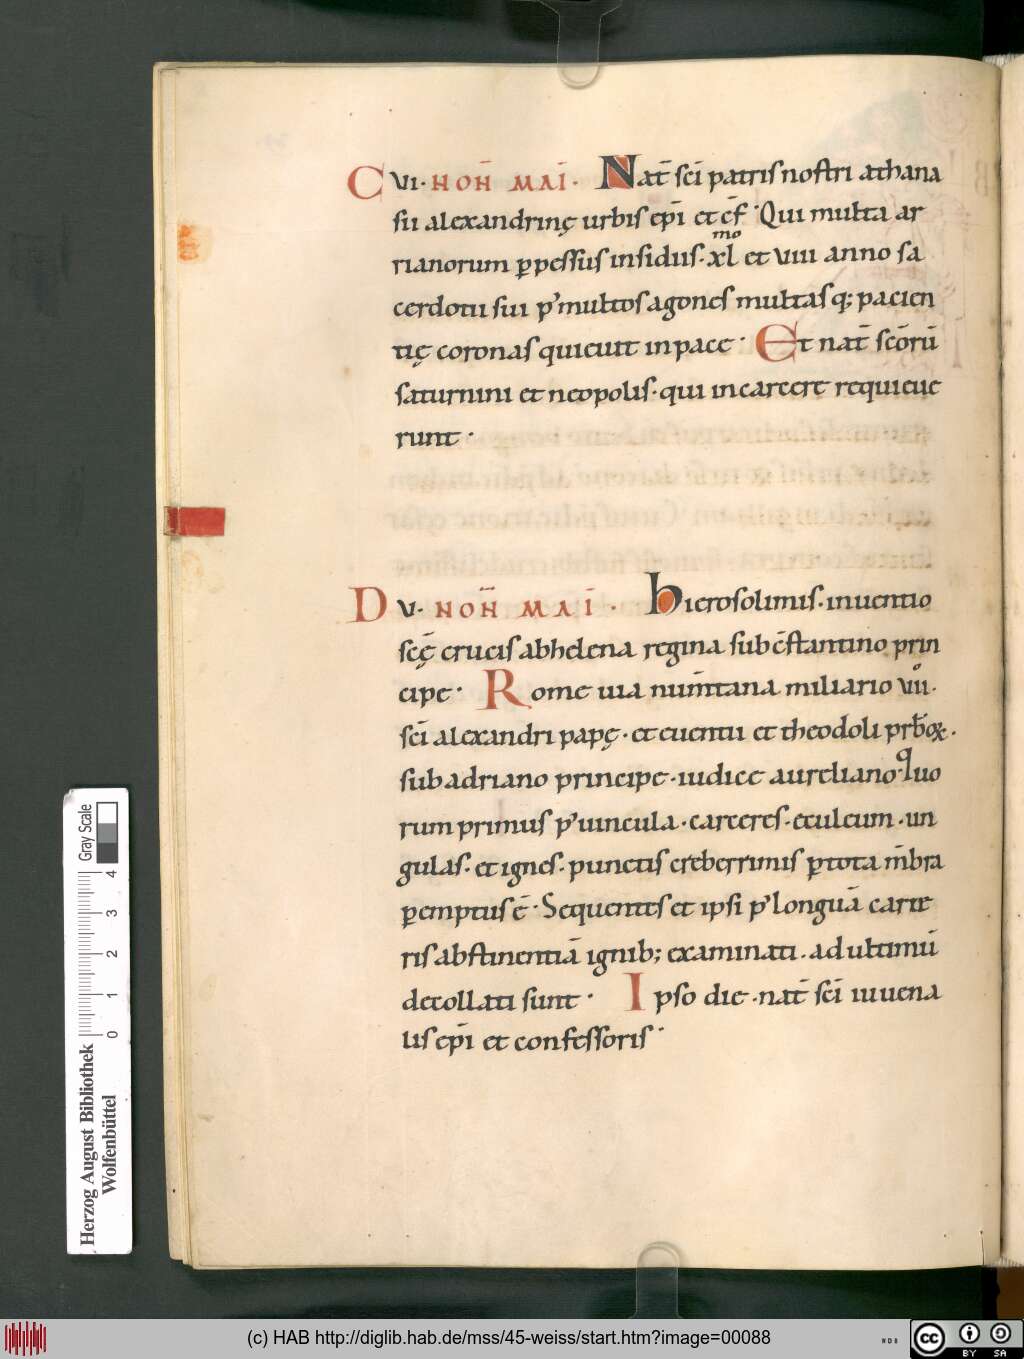 C VI · NOÑ MAI · Nat̄ sc̄i patris nostri athana
sii alexandrinę urbis ep̄i et c̄f · Qui multa ar
rianorum ꝑpessus insidiis · xl mo et viii anno sa
cerdotii sui p' multos agones multasq; pacien
tię coronas quieuit in pace · Et nat̄ sc̄orū
saturnini et neopolis · qui in carcere requieue
runt ·
D V · NOÑ MAI · hierosolimis · inuentio
sc̄ę crucis ab helena regina sub c̄stantino prin
cipe · Rome uia num̄tana miliario vii o ·
sc̄i alexandri papę · et euentii et theodoli prb̄oꝝ ·
sub adriano principe · iudice aureliano · quo
rum primus p' uincula · carceres · eculeum · un
gulas · et ignes · punctis creberrimis ꝑ tota m̄bra
ꝑemptus ē · Sequentes et ipsi p' longuā carce
ris abstinentiā ignib; examinati · ad ultimū
decollati sunt · Ipso die · nat̄ sc̄i iuuena
lis ep̄i et confessoris ·
Gray Scale
0 1 2 3 4
Herzog August Bibliothek
Wolfenbüttel
(c) HAB http://diglib.hab.de/mss/45-weiss/start.htm?image=00088
WDB
cc BY SA